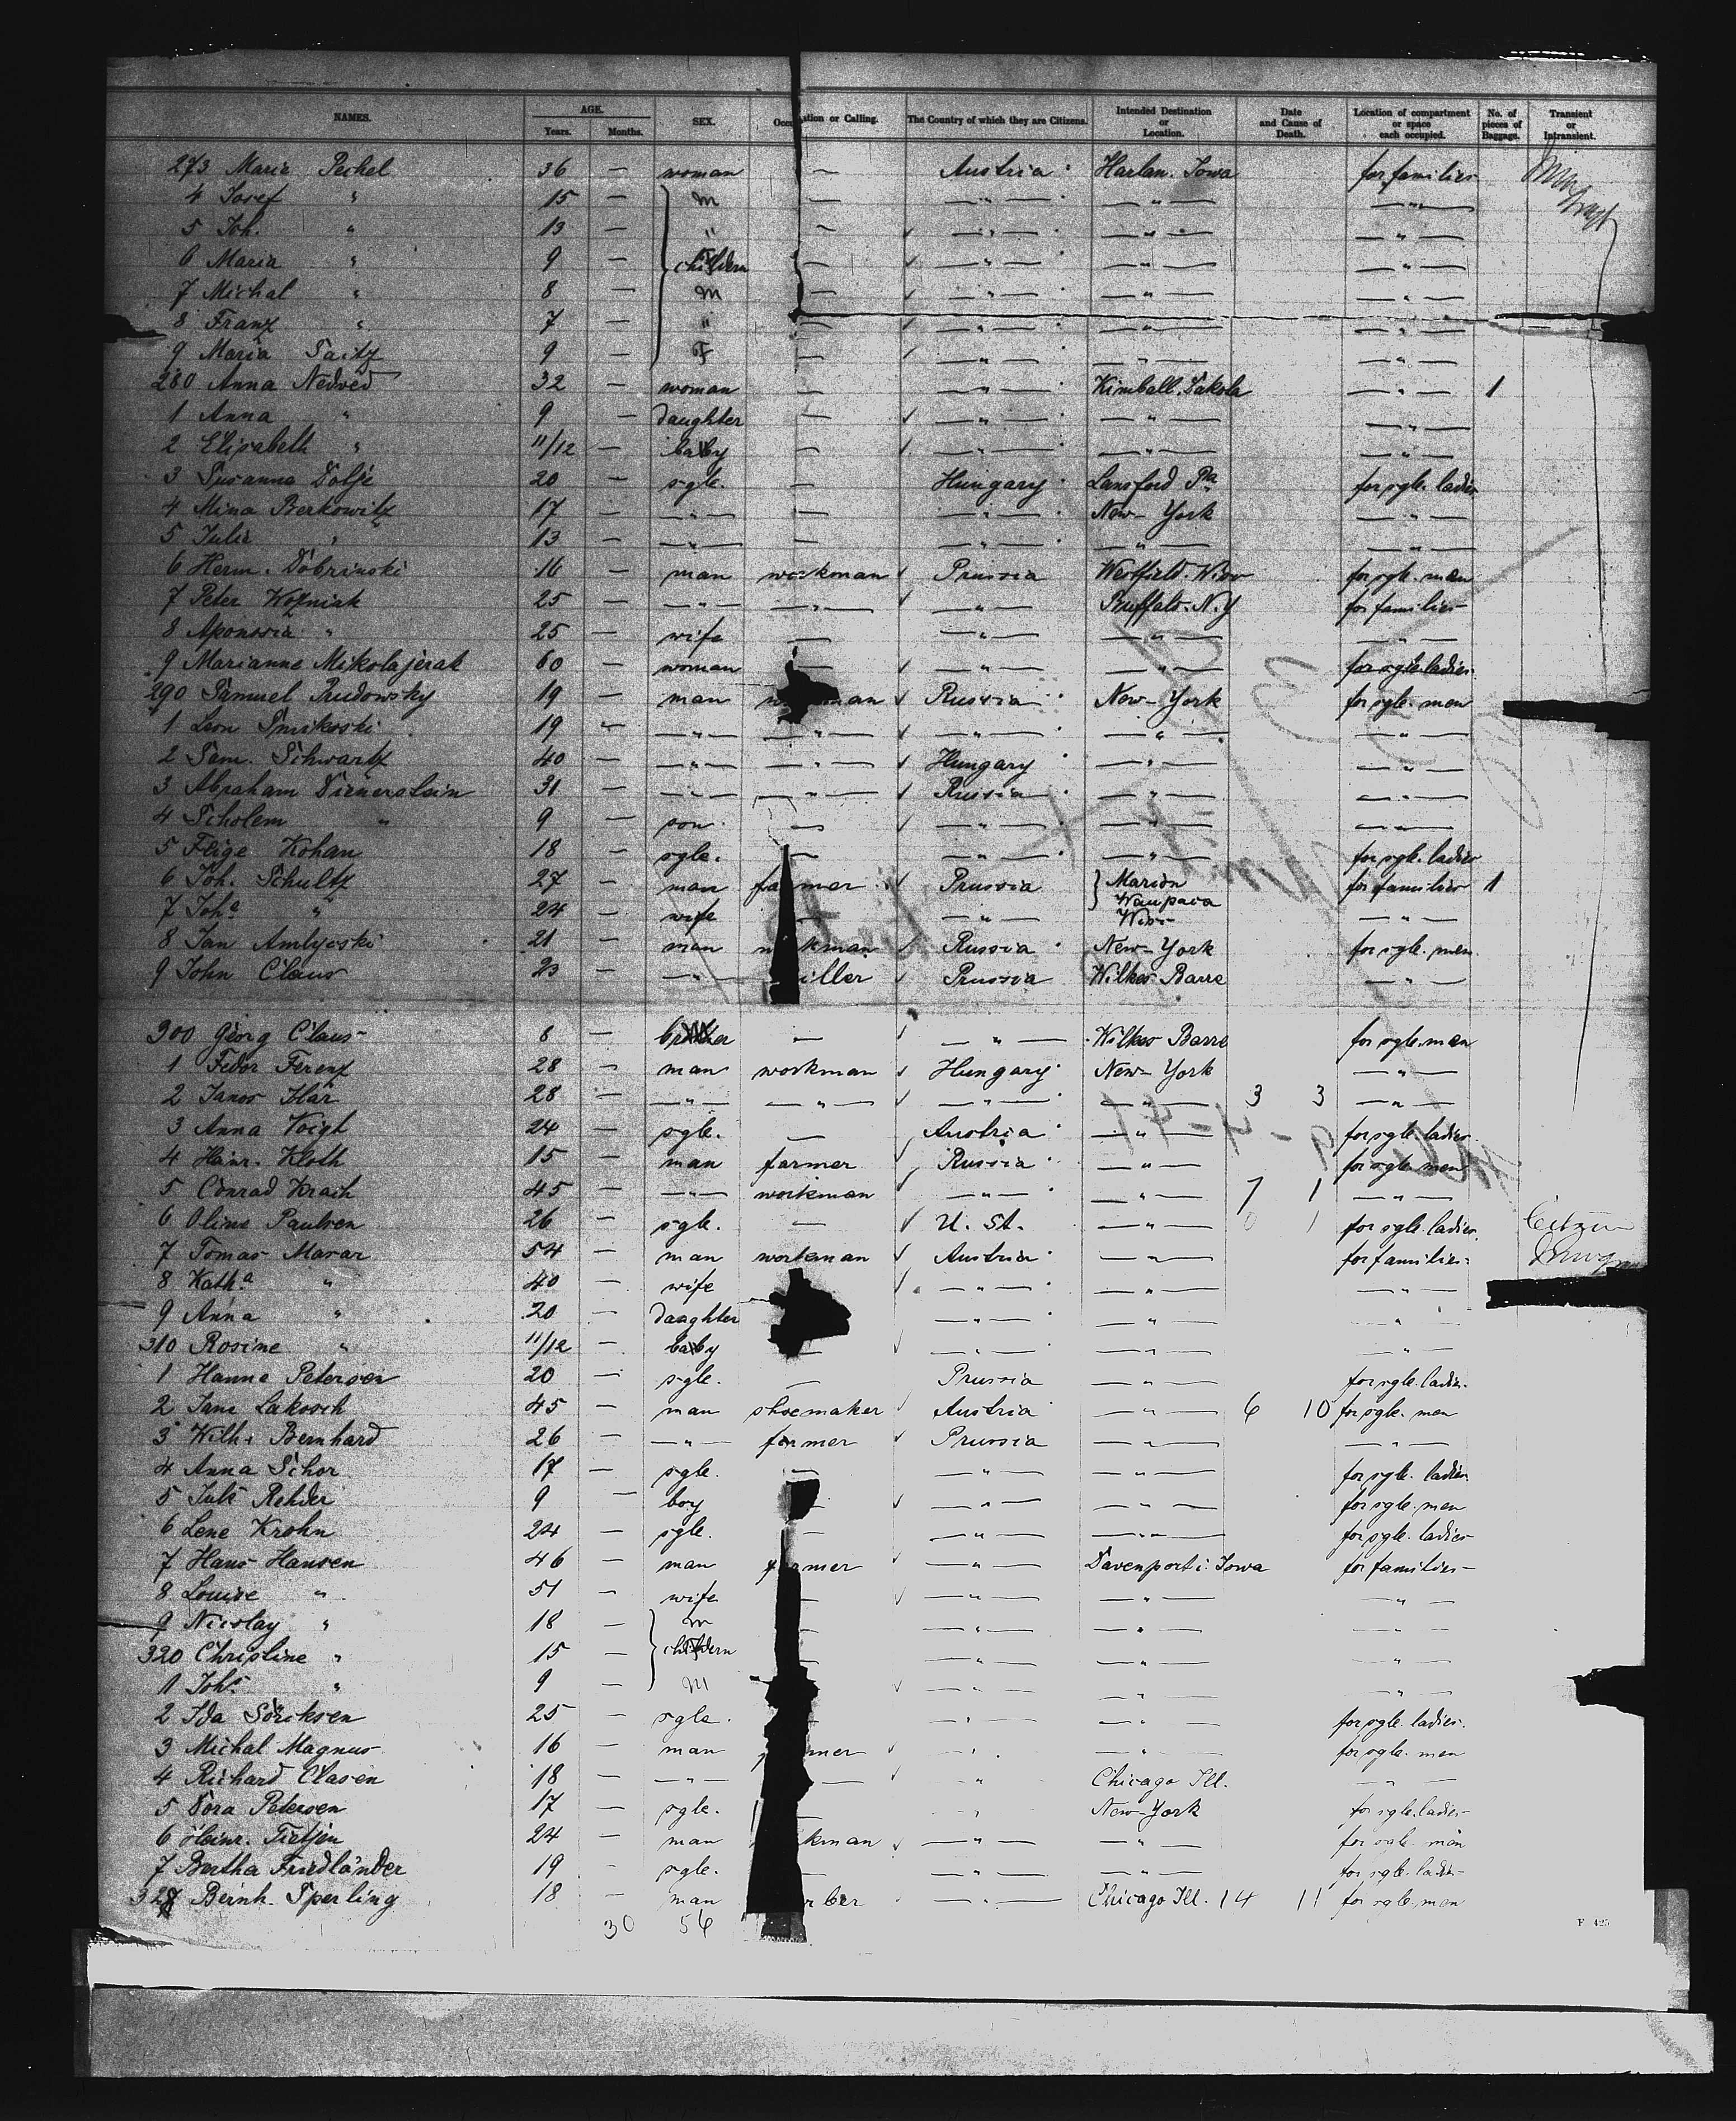 NAMES. AGE. Years. Months. SEX. Occupation or Calling. The Country of which they are Citizens. Intended Destination or Location. Date and Cause of Death. Location of compartment or space each occupied. No. of pieces of Baggage. Transient or Intransient.
273 Marie Pechel 36 — woman — Austria Harlan. Iowa for families
4 Josef " 15 — m — " " "
5 Joh. " 13 — " — " " "
6 Maria " 9 — children — " " "
7 Michal " 8 — m — " " "
8 Franz " 7 — " — " " "
9 Maria Taitz 9 — F — " " "
280 Anna Nedved 32 — woman — " Kimball. Dakota " 1
1 Anna " 9 — daughter — " " "
2 Elisabeth " 11/12 — baby — " " "
3 Susanna Dolje 20 — sgle. — Hungary Lansford Pa for sgle. ladies
4 Mina Berkowitz 17 — " — " New-York "
5 Julie " 13 — " — " " "
6 Herm. Dobrinski 16 — man workman Prussia Westfield. Wis for sgle. men
7 Peter Wozniak 25 — " " " Buffalo. N.Y for families
8 Aponovia " 25 — wife — " " "
9 Marianne Mikolajerak 60 — woman — " " for sgle. ladies
290 Samuel Rudowsky 19 — man man Russia New-York for sgle. men
1 Leon 19 — " " " " "
2 Sam. Schwartz 40 — " " Hungary " "
3 Abraham 31 — " " Russia " "
4 Scholem " 9 — son — " " "
5 Feige Kohan 18 — sgle. — " " for sgle. ladies
6 Joh. Schultz 27 — man farmer Prussia Marion for families 1
Waupaca
7 Joha " 24 — wife — " Wis "
8 Jan Amlyoski 21 — man kman Russia New-York for sgle. men
9 John Claus 23 — " iller Prussia Wilkes Barre "
300 Georg Claus 8 — brother — " Wilkes Barre for sgle. men
1 Fedor Ferenz 28 — man workman Hungary New-York "
2 Janos Har 28 — " " " " 3 3 "
3 Anna Voigt 24 — sgle. — Austria " for sgle. ladies
4 Heinr. Kloth 15 — man farmer Russia " for sgle. men
5 Conrad Kraih 45 — " workman " " 7 1 "
6 Oline Paulsen 26 — sgle. — U. St. " 0 1 for sgle. ladies Citizen
7 Tomas Marar 54 — man workman Austria " for families
8 Katha " 40 — wife " " "
9 Anna " 20 — daughter " " "
310 Rosine " 11/12 — baby — " " "
1 Hanna Petersen 20 — sgle. — Prussia " for sgle. ladies
2 Jans Lakosch 45 — man shoemaker Austria " 6 10 for sgle. men
3 Wilh. Bernhard 26 — " farmer Prussia " "
4 Anna Schor 17 — sgle. — " " for sgle. ladies
5 Juls Rehder 9 — boy — " " for sgle. men
6 Lene Krohn 24 — sgle. — " " for sgle. ladies
7 Hans Hansen 46 — man farmer " Davenport i. Iowa for families
8 Louise " 51 — wife — " " "
9 Nicolay " 18 — m — " " "
320 Christine " 15 — children — " " "
1 Johs " 9 — m " " "
2 Ida Söriksen 25 — sgle. — " " for sgle. ladies
3 Michal Magnus 16 — man mer " " for sgle. men
4 Richard Clasen 18 — " — " Chicago Ill. "
5 Dora Petersen 17 — sgle. — " New-York for sgle. ladies
6 Heinr. Tietjen 24 — man kman " " for sgle. men
7 Bertha Friedländer 19 — sgle. — " " for sgle. ladies
328 Bernh. Sperling 18 — man rber " Chicago Ill. 14 11 for sgle. men
30 56
F 425